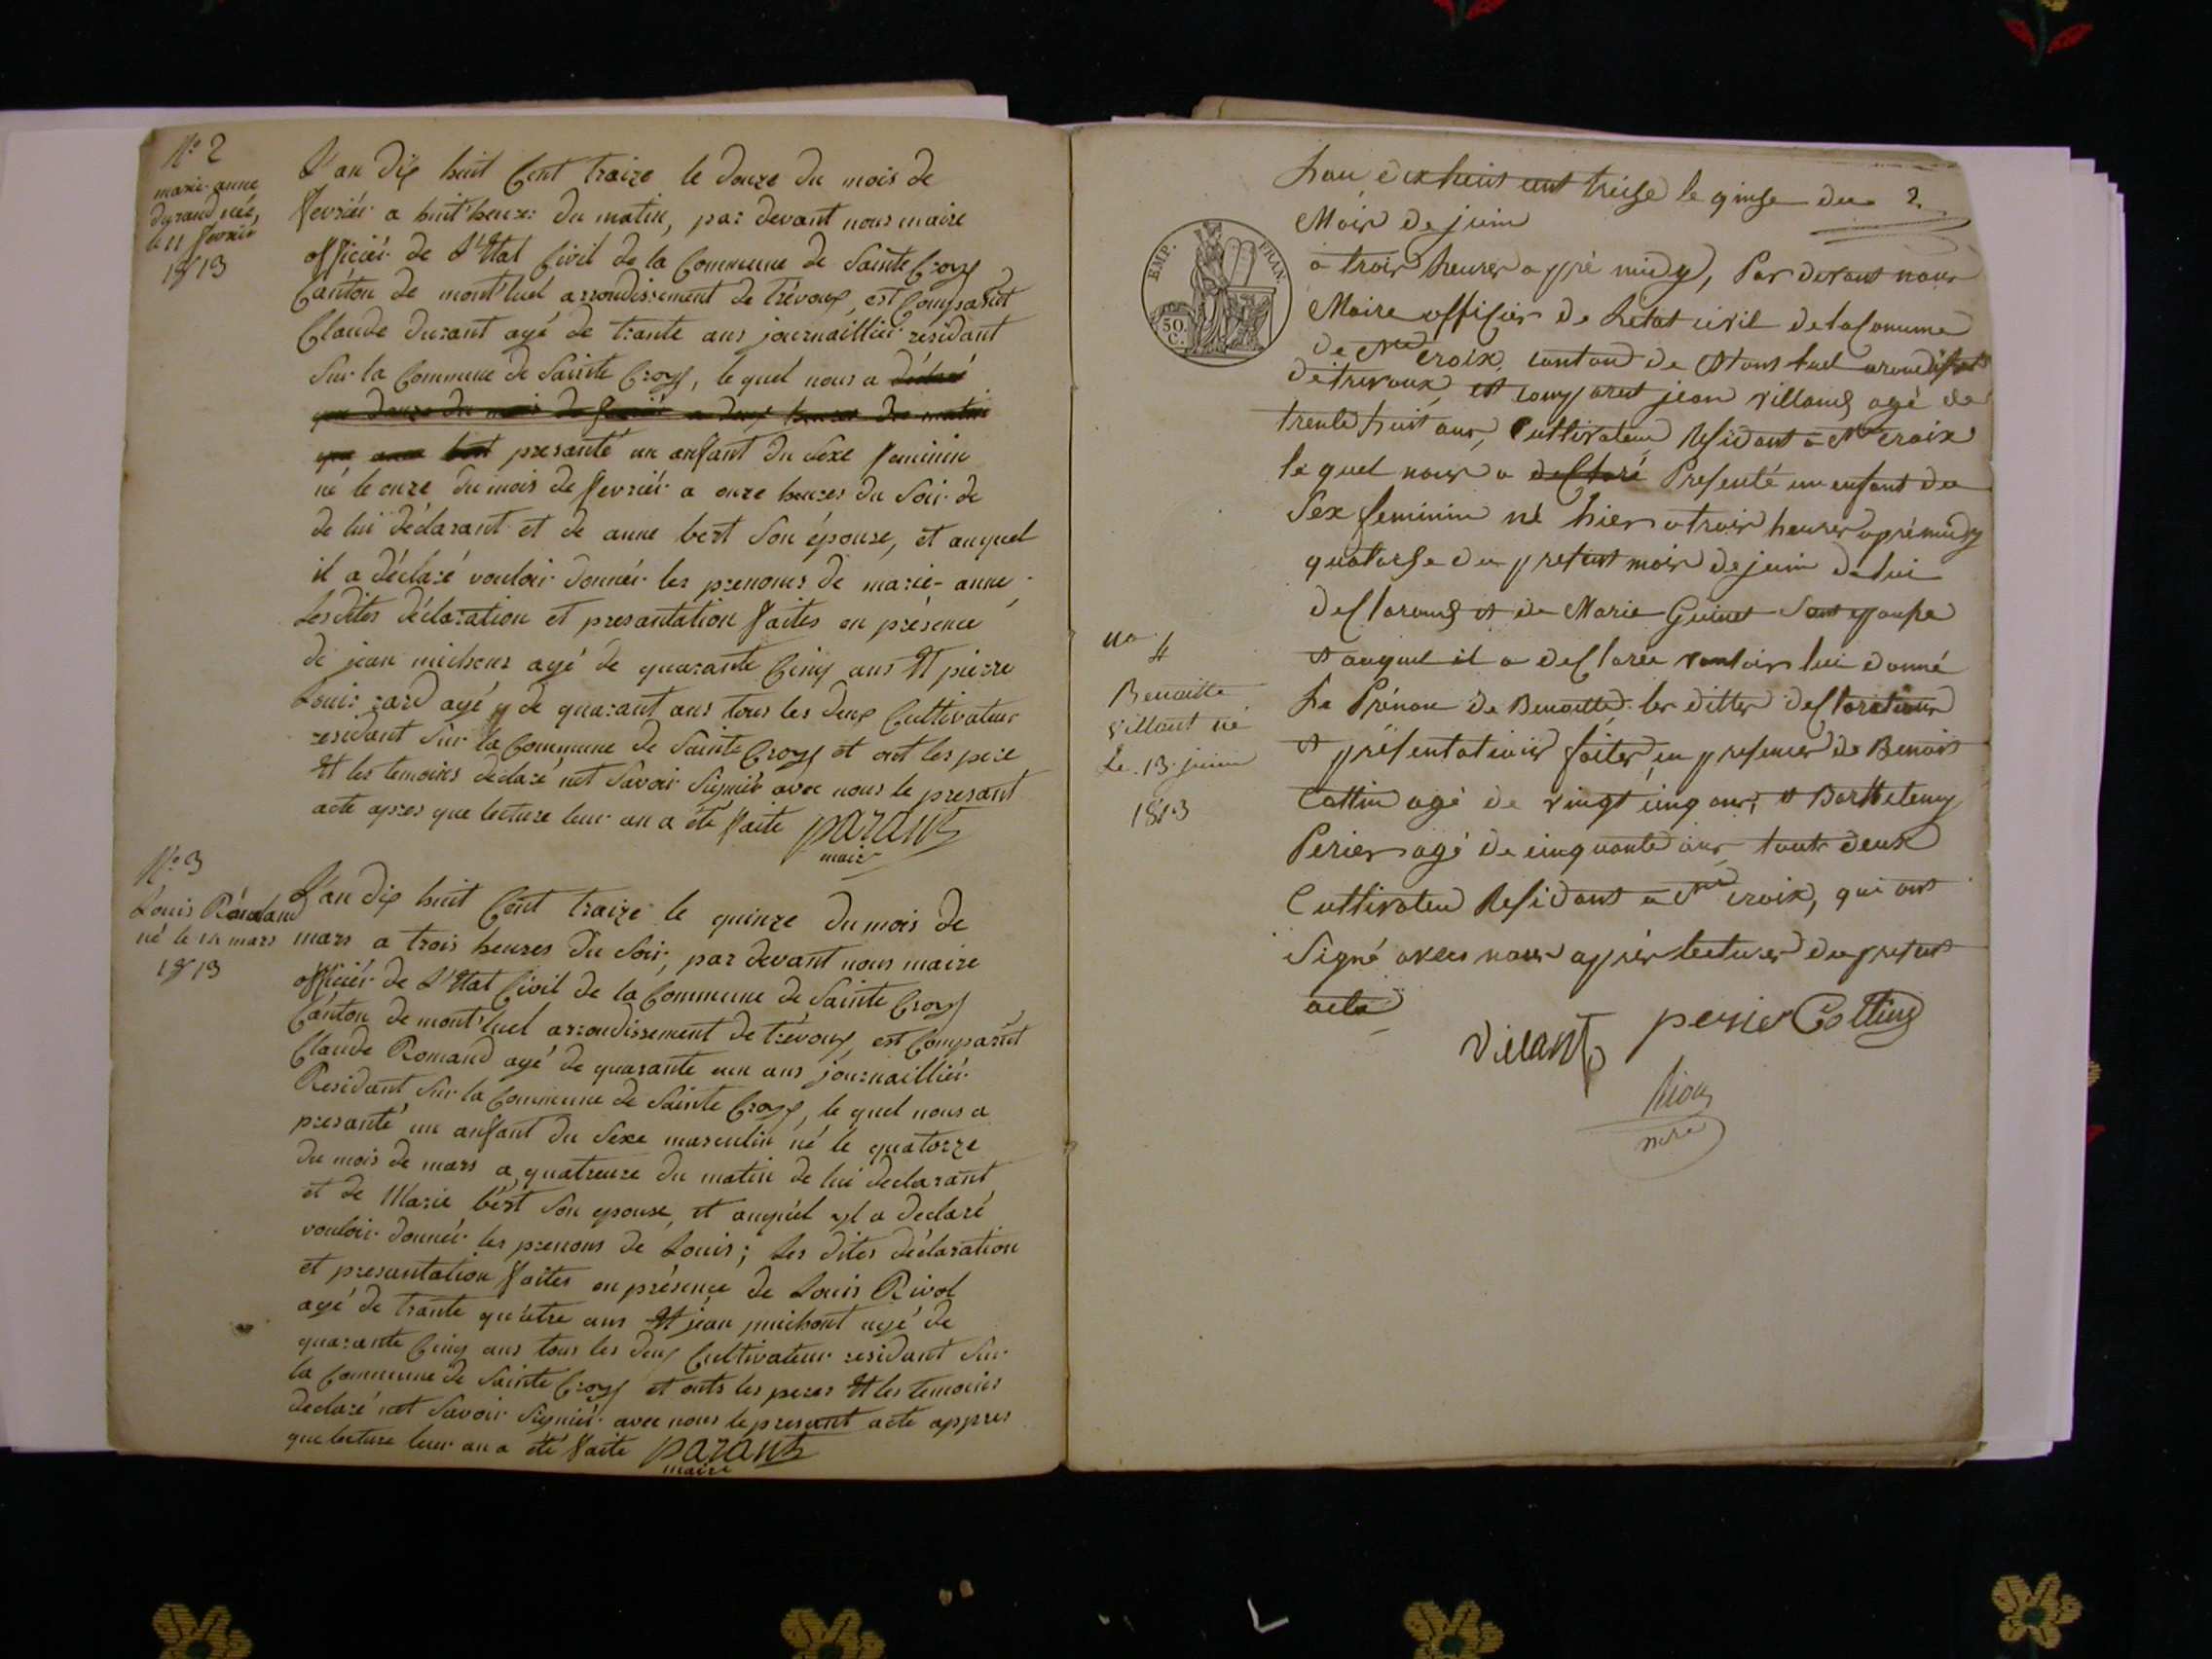 N.o 2
marie-anne
durand née
le 11 fevrier
1813
L'an dix huit Cent traize le douze du mois de
fevriér a huit heures du matin, par devant nous maire
officiér de L'Etat Civil de la Commune de Sainte Croyx
Canton de mont'luel arrondissement de trévoux, est Comparut
Claude durant agé de trante ans journailliér residant
Sur la Commune de Sainte Croyx, le quel nous a déclaré
que douze du mois de fevriér a deux heures du matin
bert presanté un anfant du Sexe feminin
né le onze du mois de fevriér a onze heures du Soir de
de lui déclarant et de anne bert Son épouse, et auquel
il a déclaré vouloir donnér les prenoms de marie-anne,
Les dites déclaration et presantation faites en présence
de jean michons agé de quarante Cinq ans Et pierre
Louis agé de quarant ans tous les deux Cultivateur
residant Sur la Commune de Sainte Croyx et ont les pere
Et les temoins declaré net Savoir Signiér avec nous le presant
acte apres que lecture leur an a été faite parant
maire
N.o 3
Louis Romand
né le 14 mars
1813
L'an dix huit Cent traize le quinze du mois de
mars a trois heures du Soir, par devant nous maire
officiér de L'Etat Civil de la Commune de Sainte Croyx
Canton de mont'luel arrondissement de trévoux, est Comparut
Claude Romand agé de quarante un ans journailliér
Residant Sur la Commune de Sainte Croyx, le quel nous a
presanté un anfant du Sexe masculin né le quatorze
du mois de mars a quatreure du matin de lui declarant
et de Marie bert Son epouse, et auquel yl a declaré
vouloir donnér les prenoms de Louis; Les dites déclaration
et presantation faites en présence de Louis Rivol
agé de trante quatre ans Et jean michont agé de
quarante Cinq ans tous les deux Cultivateur residant Sur
la Commune de Sainte Croyx et onts les peres Et les temoins
declaré net Savoir Signiér avec nous le presant acte appres
que lecture leur an a été faite parant
maire
2
EMP. FRAN.
50
C.
Lan dix huit cent treise le quinse du
Mois de juin
a trois heures apprè midy, Par devant nous
Maire officier de Létat civil de la Comune
de Ste croix, canton de Montluel
de trevoux, est comparut jean villand agé de
trente huit ans, Cultivateur Résidant a Ste croix
le quel nous a declaré Présenté un enfant du
Sex feminin né hier a trois heures aprémidy
quatorse du present mois de juin de lui
declarand et de Marie Guinet Sont epouse
et auquel il a declarée vouloir lui donné
Le Prénom de Benoitte. les dittes declarations
et présentations faites en presence de Benoit
Cottin agé de vingt cinq ans, et Barthelemy
Perier agé de cinquante ans touts deux
Cultivateur Residant a Ste croix, qui ont
Signé avec nous apprés lectures du present
acte
no. 4
Benoitte
villant né
Le 13 juin
1813
villant perier Cotting